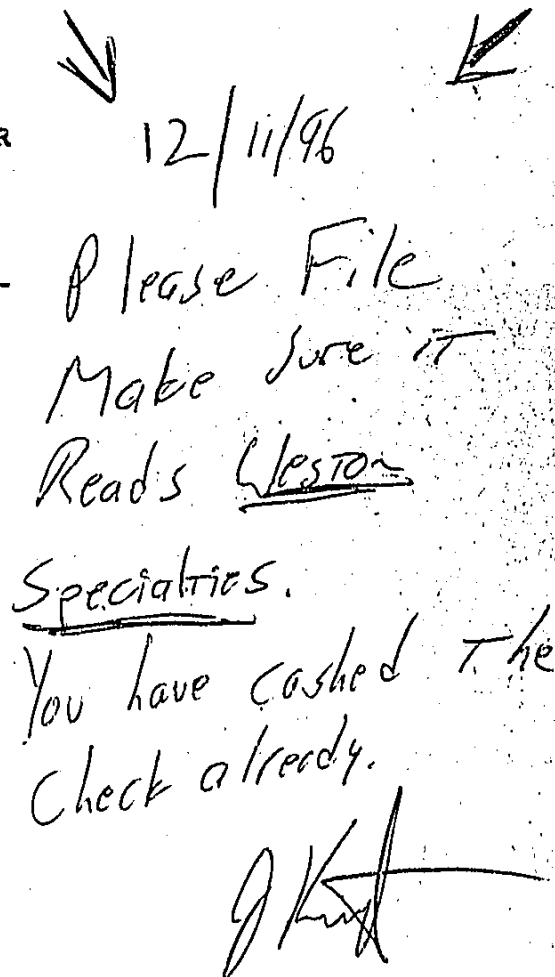 12/11/96
Please File
Make Sure it
Reads Weston
Specialties.
You have cashed The
Check already.